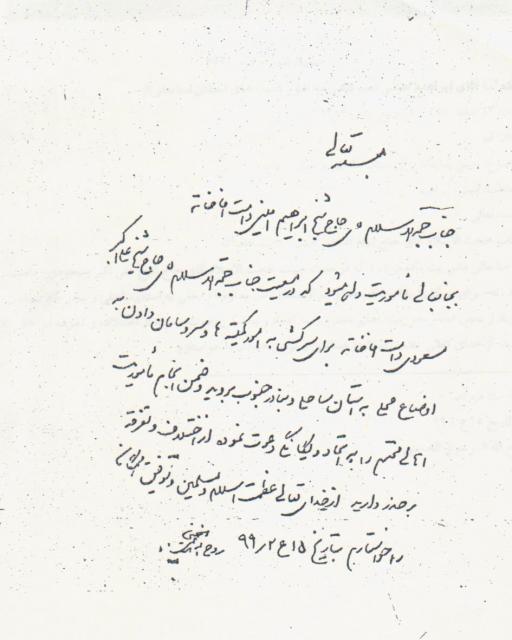 بسمه تعالی
جناب حجة الاسلام آقای حاج شیخ ابراهیم امینی دامت افاضاته
بجنابعالی مأموریت داده میشود که در معیت جناب حجة الاسلام آقای حاج شیخ علی اکبر
مسعودی دامت افاضاته برای سرکشی به امور کمیته ها و سر و سامان دادن به
اوضاع محلی به استان ساحلی و بنادر جنوب بروید و ضمن انجام مأموریت
اهالی محترم را به اتحاد و یگانگی دعوت نموده از اختلاف و تفرقه
برحذر دارید از خدای تعالی عظمت اسلام و مسلمین و توفیق
را خواستارم بتاریخ ۱۵ ع ۲ ر ۹۹ روح الله الموسوی الخمینی